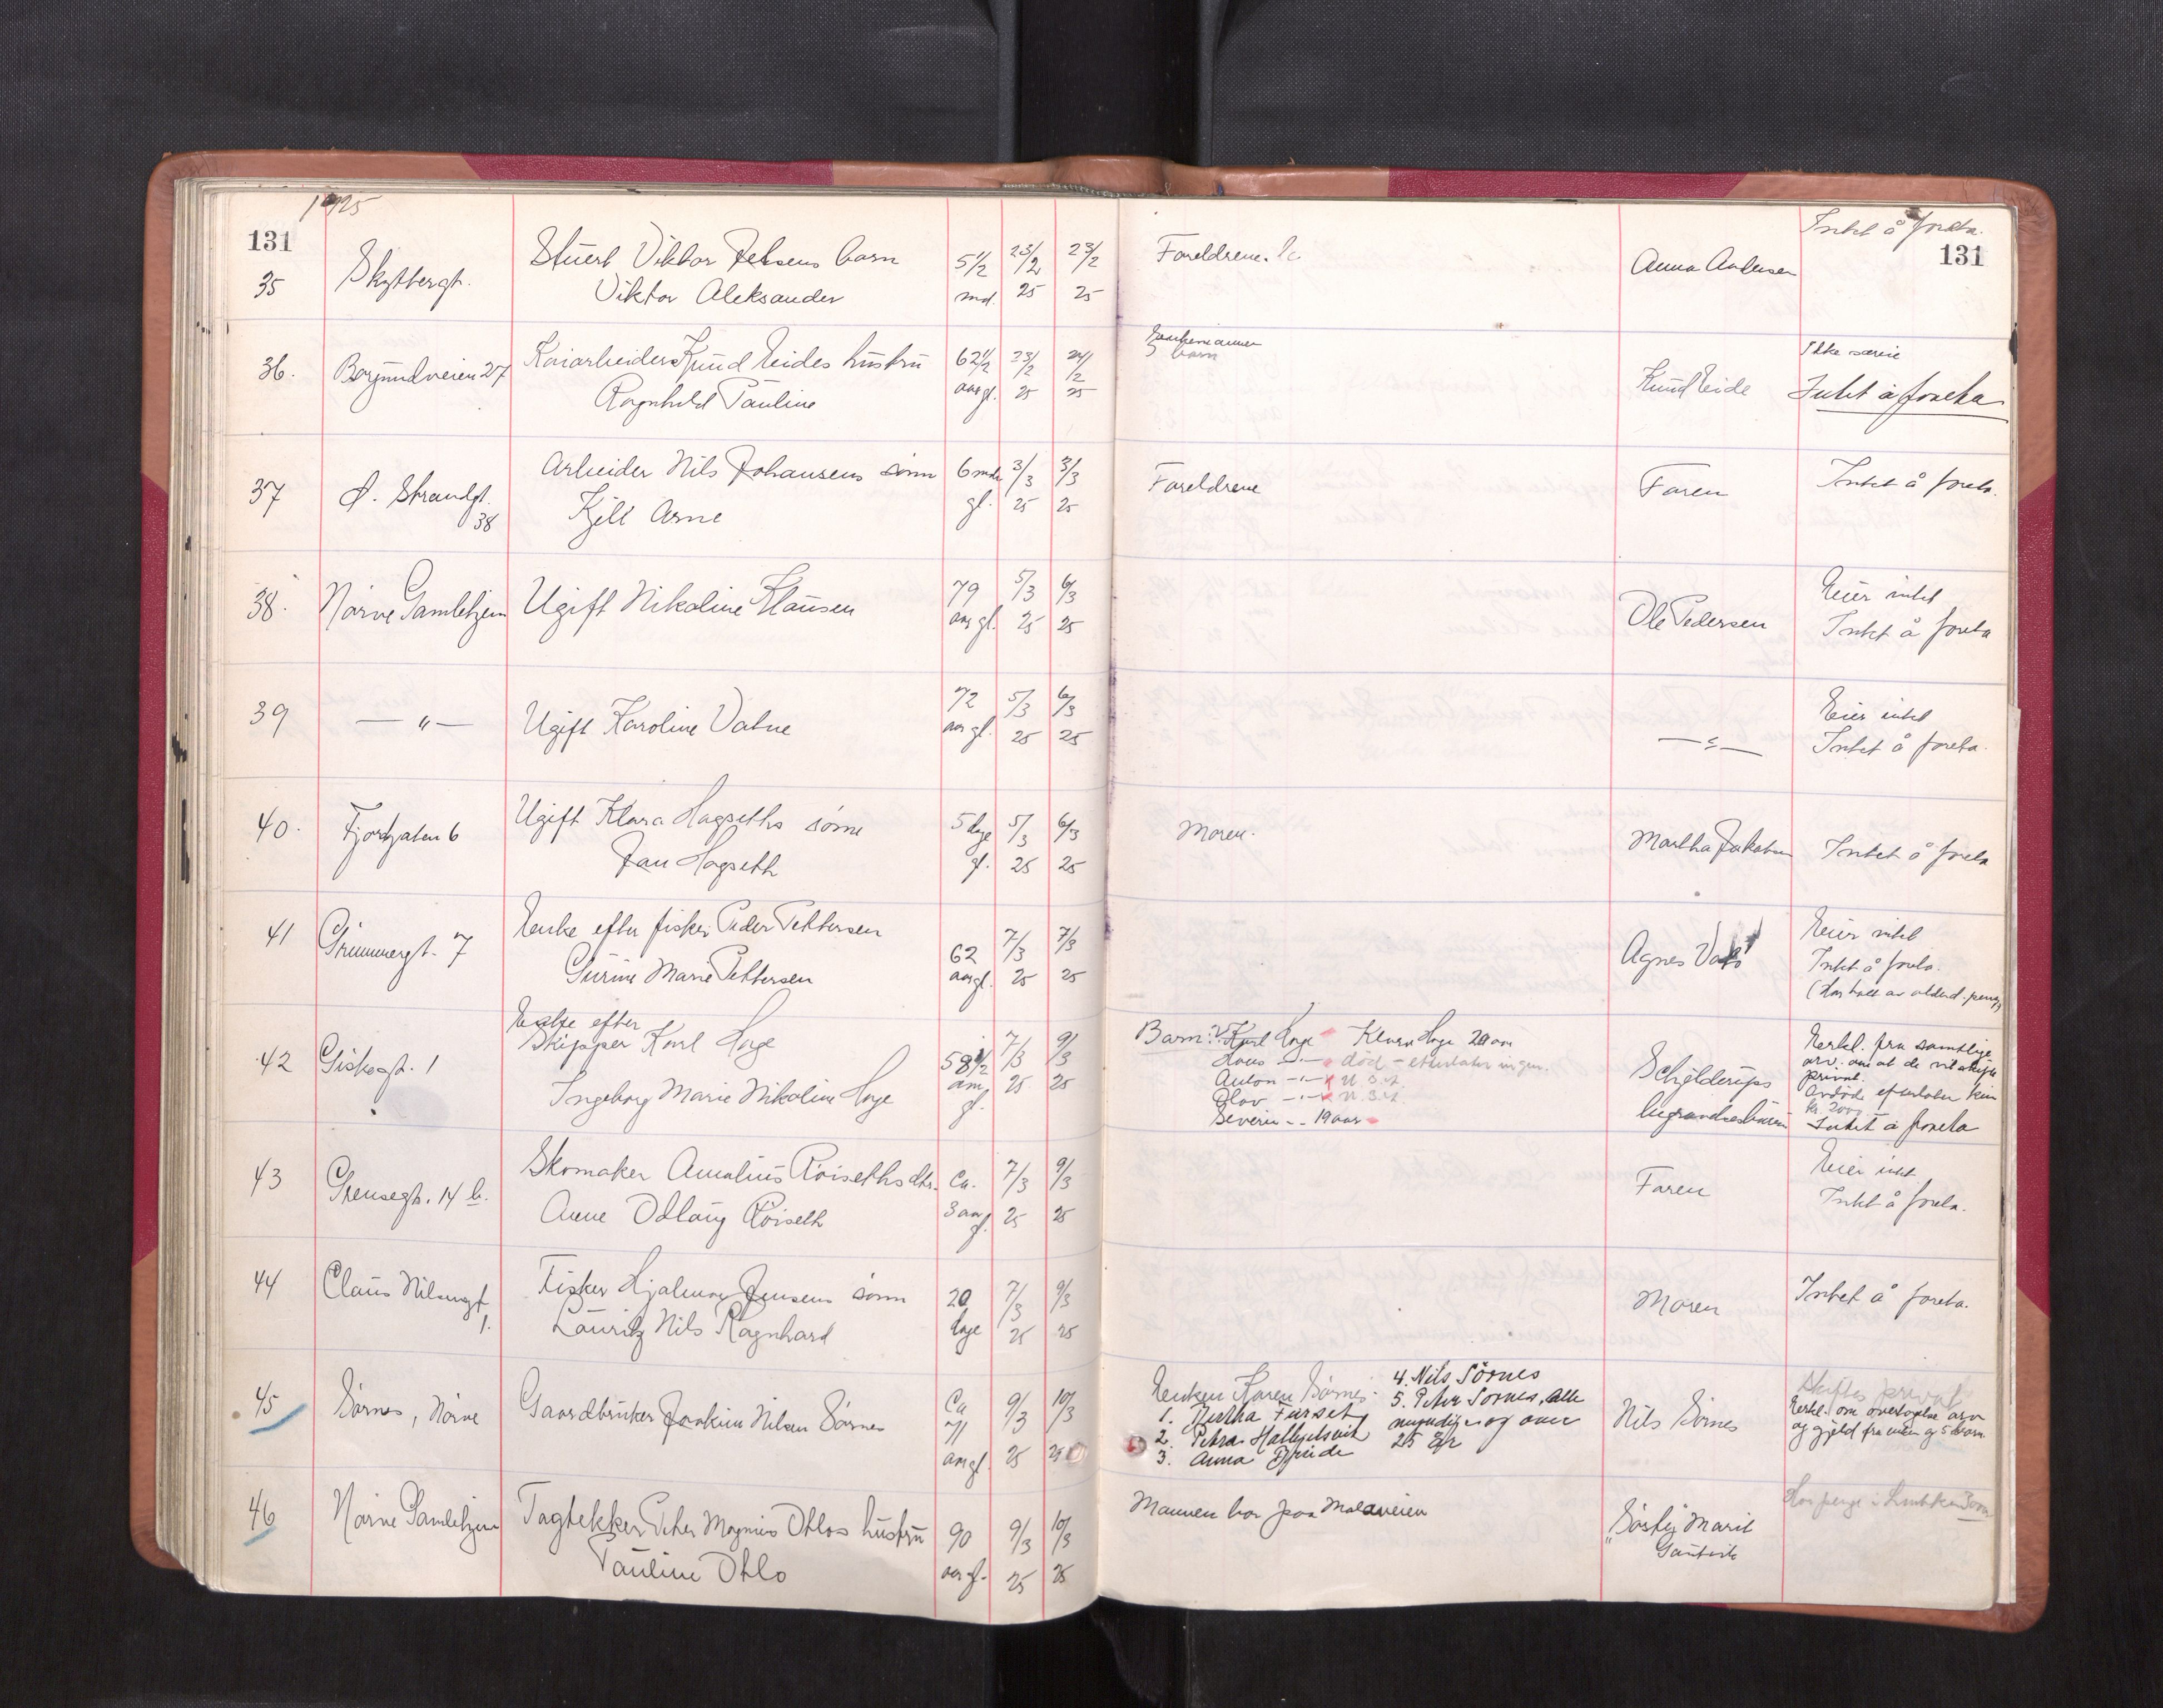 1925
131
35
Skyttergt.
Stuert Viktor Jensens barn
Viktor Aleksander
5 1/2 md.
23/2 25
23/2 25
Foreldrene
Anna Andersen
Intet å foreta.
131
36.
Borgundveien 27
Kaiarbeider Knud Eides hustru
Ragnhild Pauline
62 1/2 aar gl.
23/2 25
24/2 25
Enkemannen
5 barn
Knud Eide
Ikke særeie
Intet å foreta
37
Ø. Strandgt. 38
Arbeider Nils Johansens sønn
Kjell Arne
6 mdr gl.
3/3 25
3/3 25
Foreldrene
Faren
Intet å foreta.
38.
Nørve Gamlehjem
Ugift Nikoline Klausen
79 aar gl.
5/3 25
6/3 25
Ole Pedersen
Eier intet
Intet å foreta
39
— " —
Ugift Karoline Vatne
72 aar gl.
5/3 25
6/3 25
— " —
Eier intet
Intet å foreta.
40.
Fjordgaten 6
Ugift Klara Hagseths sønn
Jan Hagseth
5 dage gl.
5/3 25
6/3 25
Moren.
Martha Jakobsen
Intet å foreta
41
Grimmergt. 7
Enke efter fisker Peder Pettersen
Gurine Marie Pettersen
62 aar gl.
7/3 25
7/3 25
Agnes
Eier intet
Intet å foreta.
(Har hatt av alderd. penge)
42
Giskegt. 1
Enke efter
Skipper Karl Hage
Ingeborg Marie Nikoline Hage
58 1/2 aar gl.
7/3 25
9/3 25
Barn: Karl Hage Klara Hage 20 aar
— " — død - efterlater ingen.
Anton — " —
Olav — " —
Severin - - 19 aar
Schjelderups
begravelsesbyraa
Erkl. fra samtlige
arv. om at de vil skifte
privat.
Avdøde efterlater kun
kr. 2000
Intet å foreta
43
Grensegt. 14 b.
Skomaker Amalius Røiseths dtr.
Anne Odlaug Røiseth
Ca. 3 aar gl.
7/3 25
9/3 25
Faren
Eier intet
Intet å foreta.
44
Claus Nilsengt 1.
Fisker Hjalmar Jensens sønn
Lauritz Nils Ragnhard
20 dage
7/3 25
9/3 25
Moren
Intet å foreta.
45
Sørnes, Nørve
Gaardbruker Joakim Nilsen Sørnes
Ca 71 aar gl.
9/3 25
10/3 25
Enken Karen Sørnes.
1. Bertha Furset
2. Petra
3. Anna
4. Nils Sörnes
5. Peter Sornes, alle
myndige og over
25 år
Nils Sørnes
Skiftes privat
Erkl. om overtagelse arv
og gjeld fra enken og 5 barn
46
Nørve Gamlehjem
Tagtekker Peter Magnus Othos hustru
Pauline Otho
90 aar gl.
9/3 25
10/3 25
Mannen bor paa Moloveien
"Søster" Marit
Har penge i